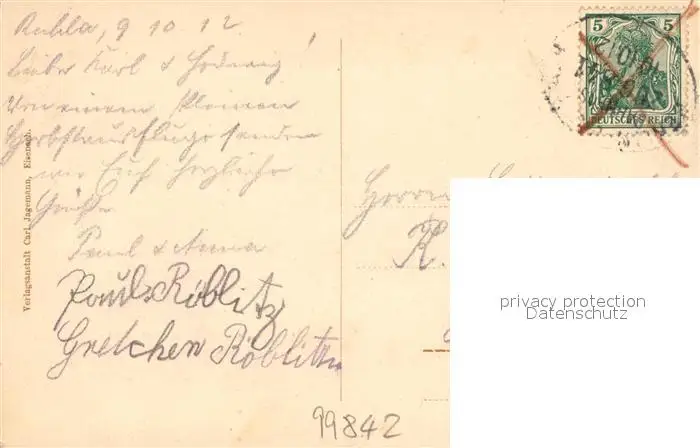 Ruhla, 9 10. 12.
Liebe Karl & Hedwig!
Von einem kleinen
Herbstausfluge senden
wir Euch herzliche
Grüße
Paul & Anna
Paul Röblitz
Gretchen Röblitz
Verlagsanstalt Carl Jagemann, Eisenach.
5 5
DEUTSCHES REICH
Herrn
K.
privacy protection
Datenschutz
99842